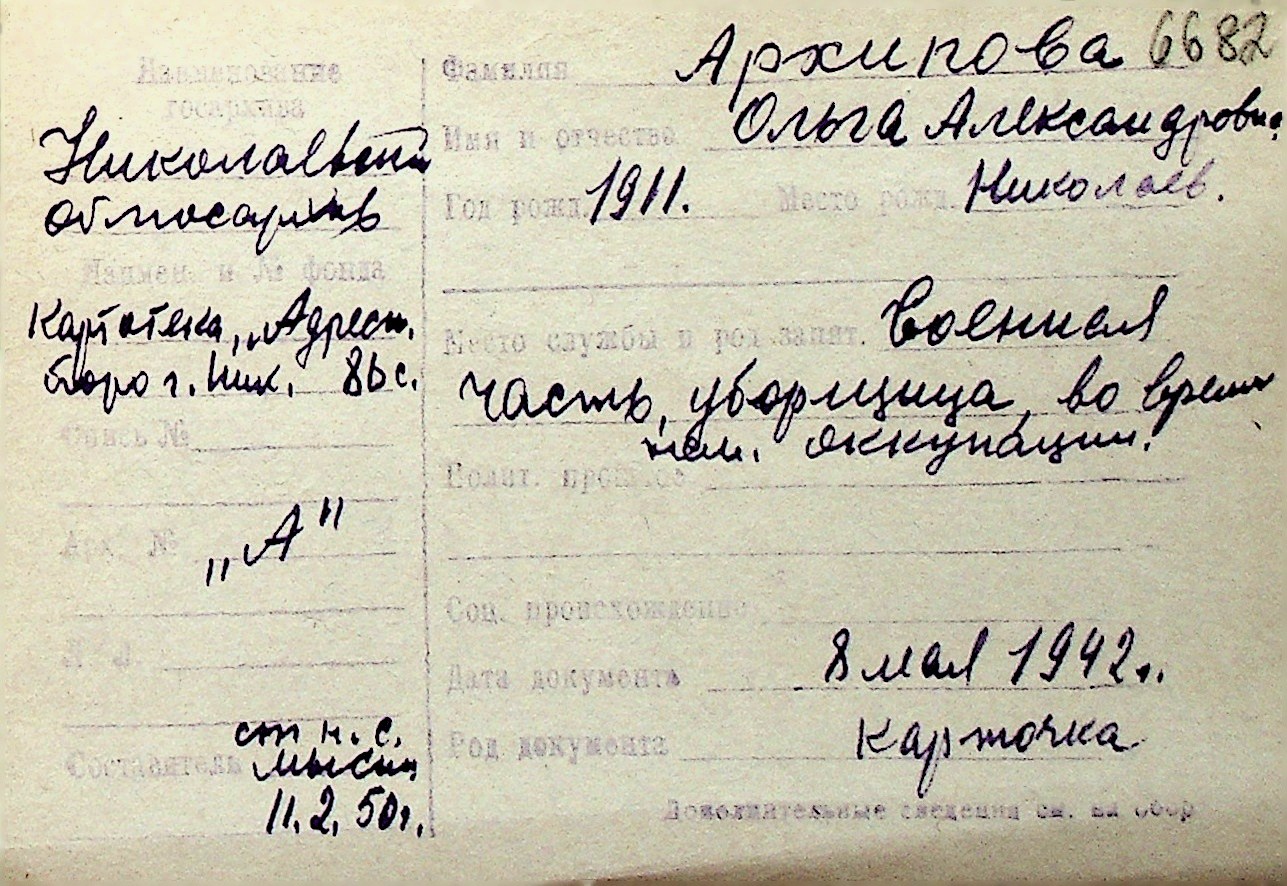 Наименование
госархива
Николаевский
облгосархив
Наимен. и № фонда
Картотека „Адресн.
бюро г. Ник. 86 с.
Опись №
Арх. №
„А"
Составитель
ст н. с.
11.2.50г.
6682
Фамилия Архипова
Имя и отчество Ольга Александровна
Год рожд. 1911. Место рожд. Николаев.
Место службы и род занят. Военная
часть, уборщица, во время
нем. оккупации.
Полит. прошлое
Соц. происхождение
Дата документа 8 мая 1942г.
Род документа карточка
Дополнительные сведения см. на обор